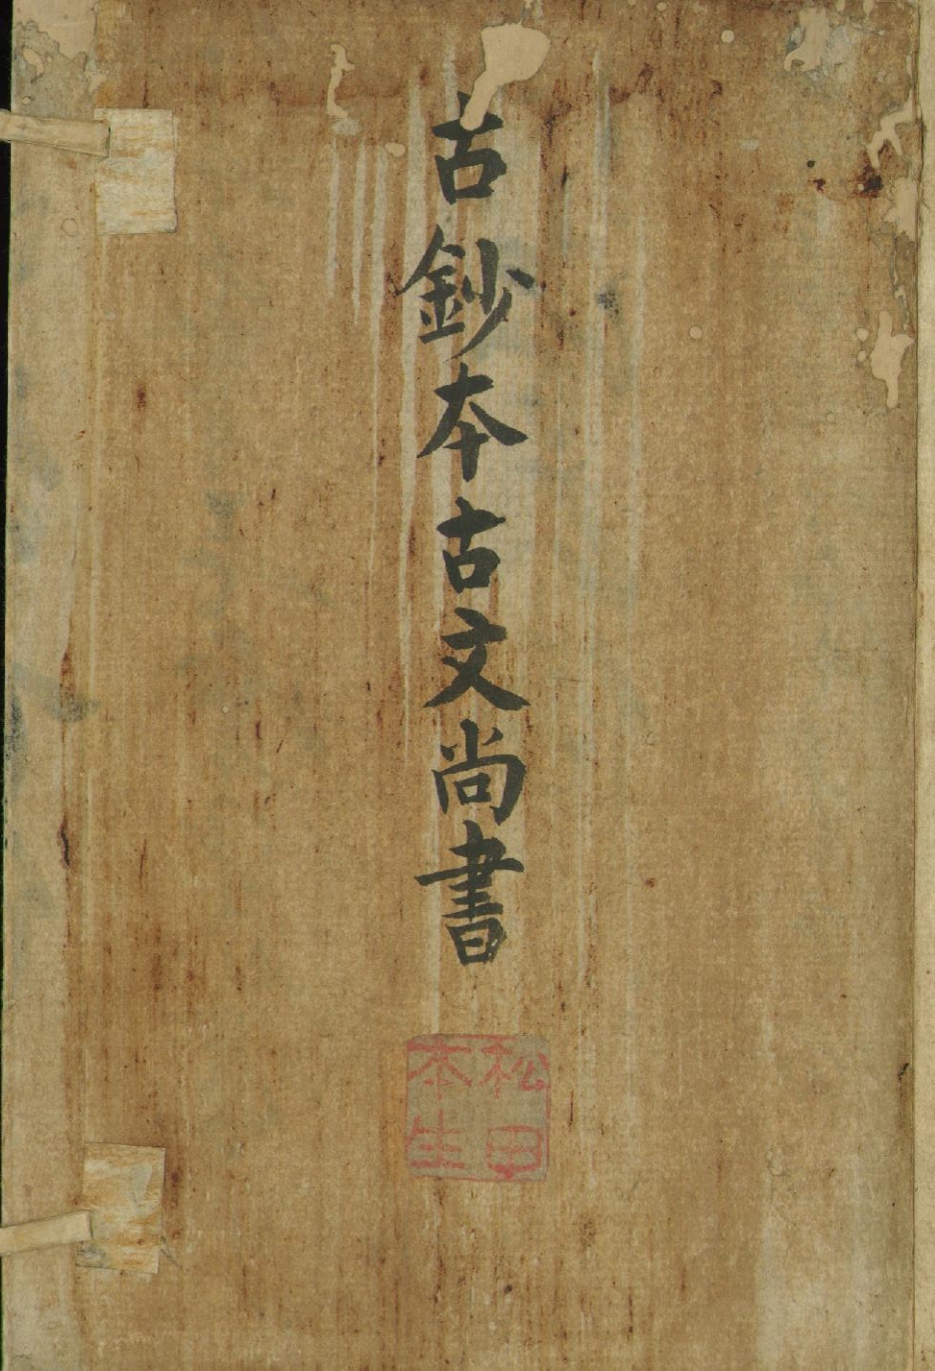 古鈔本古文尚書
松田
本生